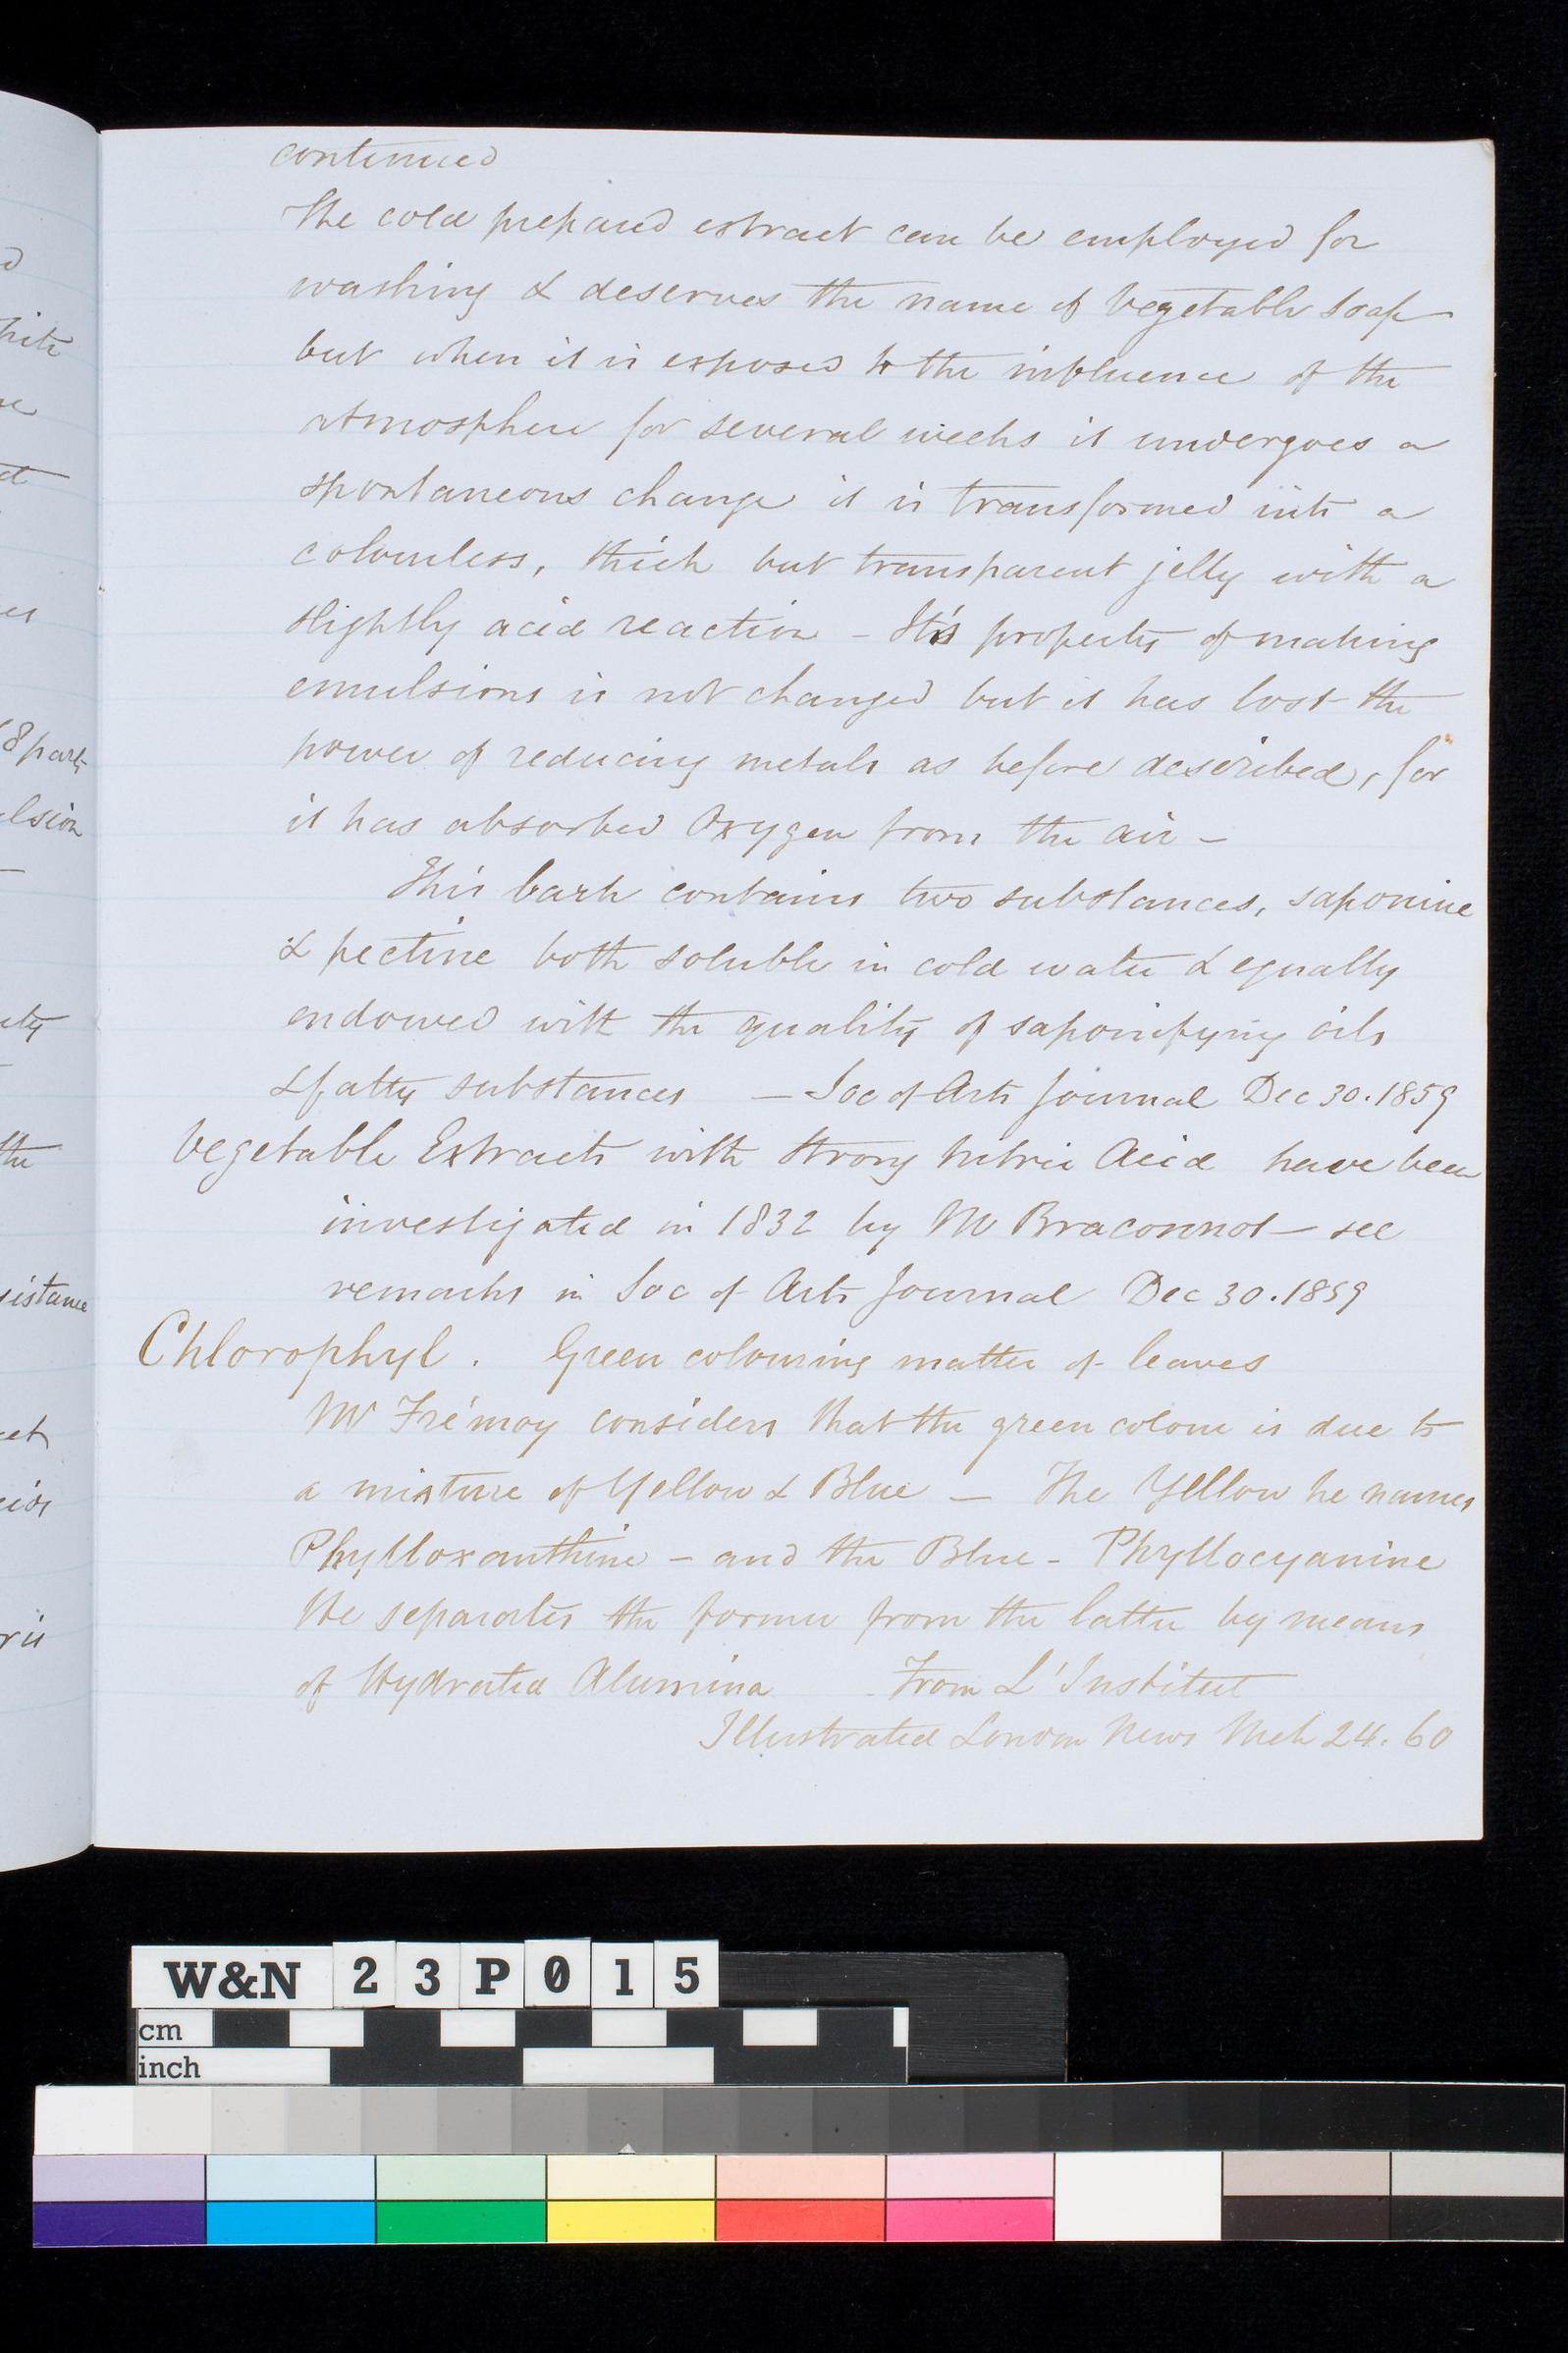 continued
The cold prepared extract can be employed for
washing & deserves the name of Vegetable Soap
but when it is exposed to the influence of the
atmosphere for several weeks it undergoes a
spontaneous change it is transformed into a
colourless, thick but transparent jelly with a
slightly acid reaction - It's property of making
emulsions is not changed but it has lost the
power of reducing metals as before described, for
it has absorbed Oxygen from the air -
This bark contains two substances, saponine
& pectine both soluble in cold water & equally
endowed with the quality of saponifying oils
& fatty substances - Soc of Arts Journal Dec 30. 1859
Vegetable Extracts with strong Nitric Acid have been
investigated in 1832 by M Braconnot - see
remarks in Soc of Arts Journal Dec 30. 1859
Chlorophyl. Green colouring matter of leaves
Mr Frémoy considers that the green colour is due to
a mixture of Yellow & Blue - The Yellow he names
Phylloxanthine - and the Blue - Phyllocyanine
He separates the former from the latter by means
of Hydrated Alumina From L'Institut
Illustrated London News Mch 24. 60
hite
8 parts
lsion
ety
the
sistance
W&N 23P015
cm
inch